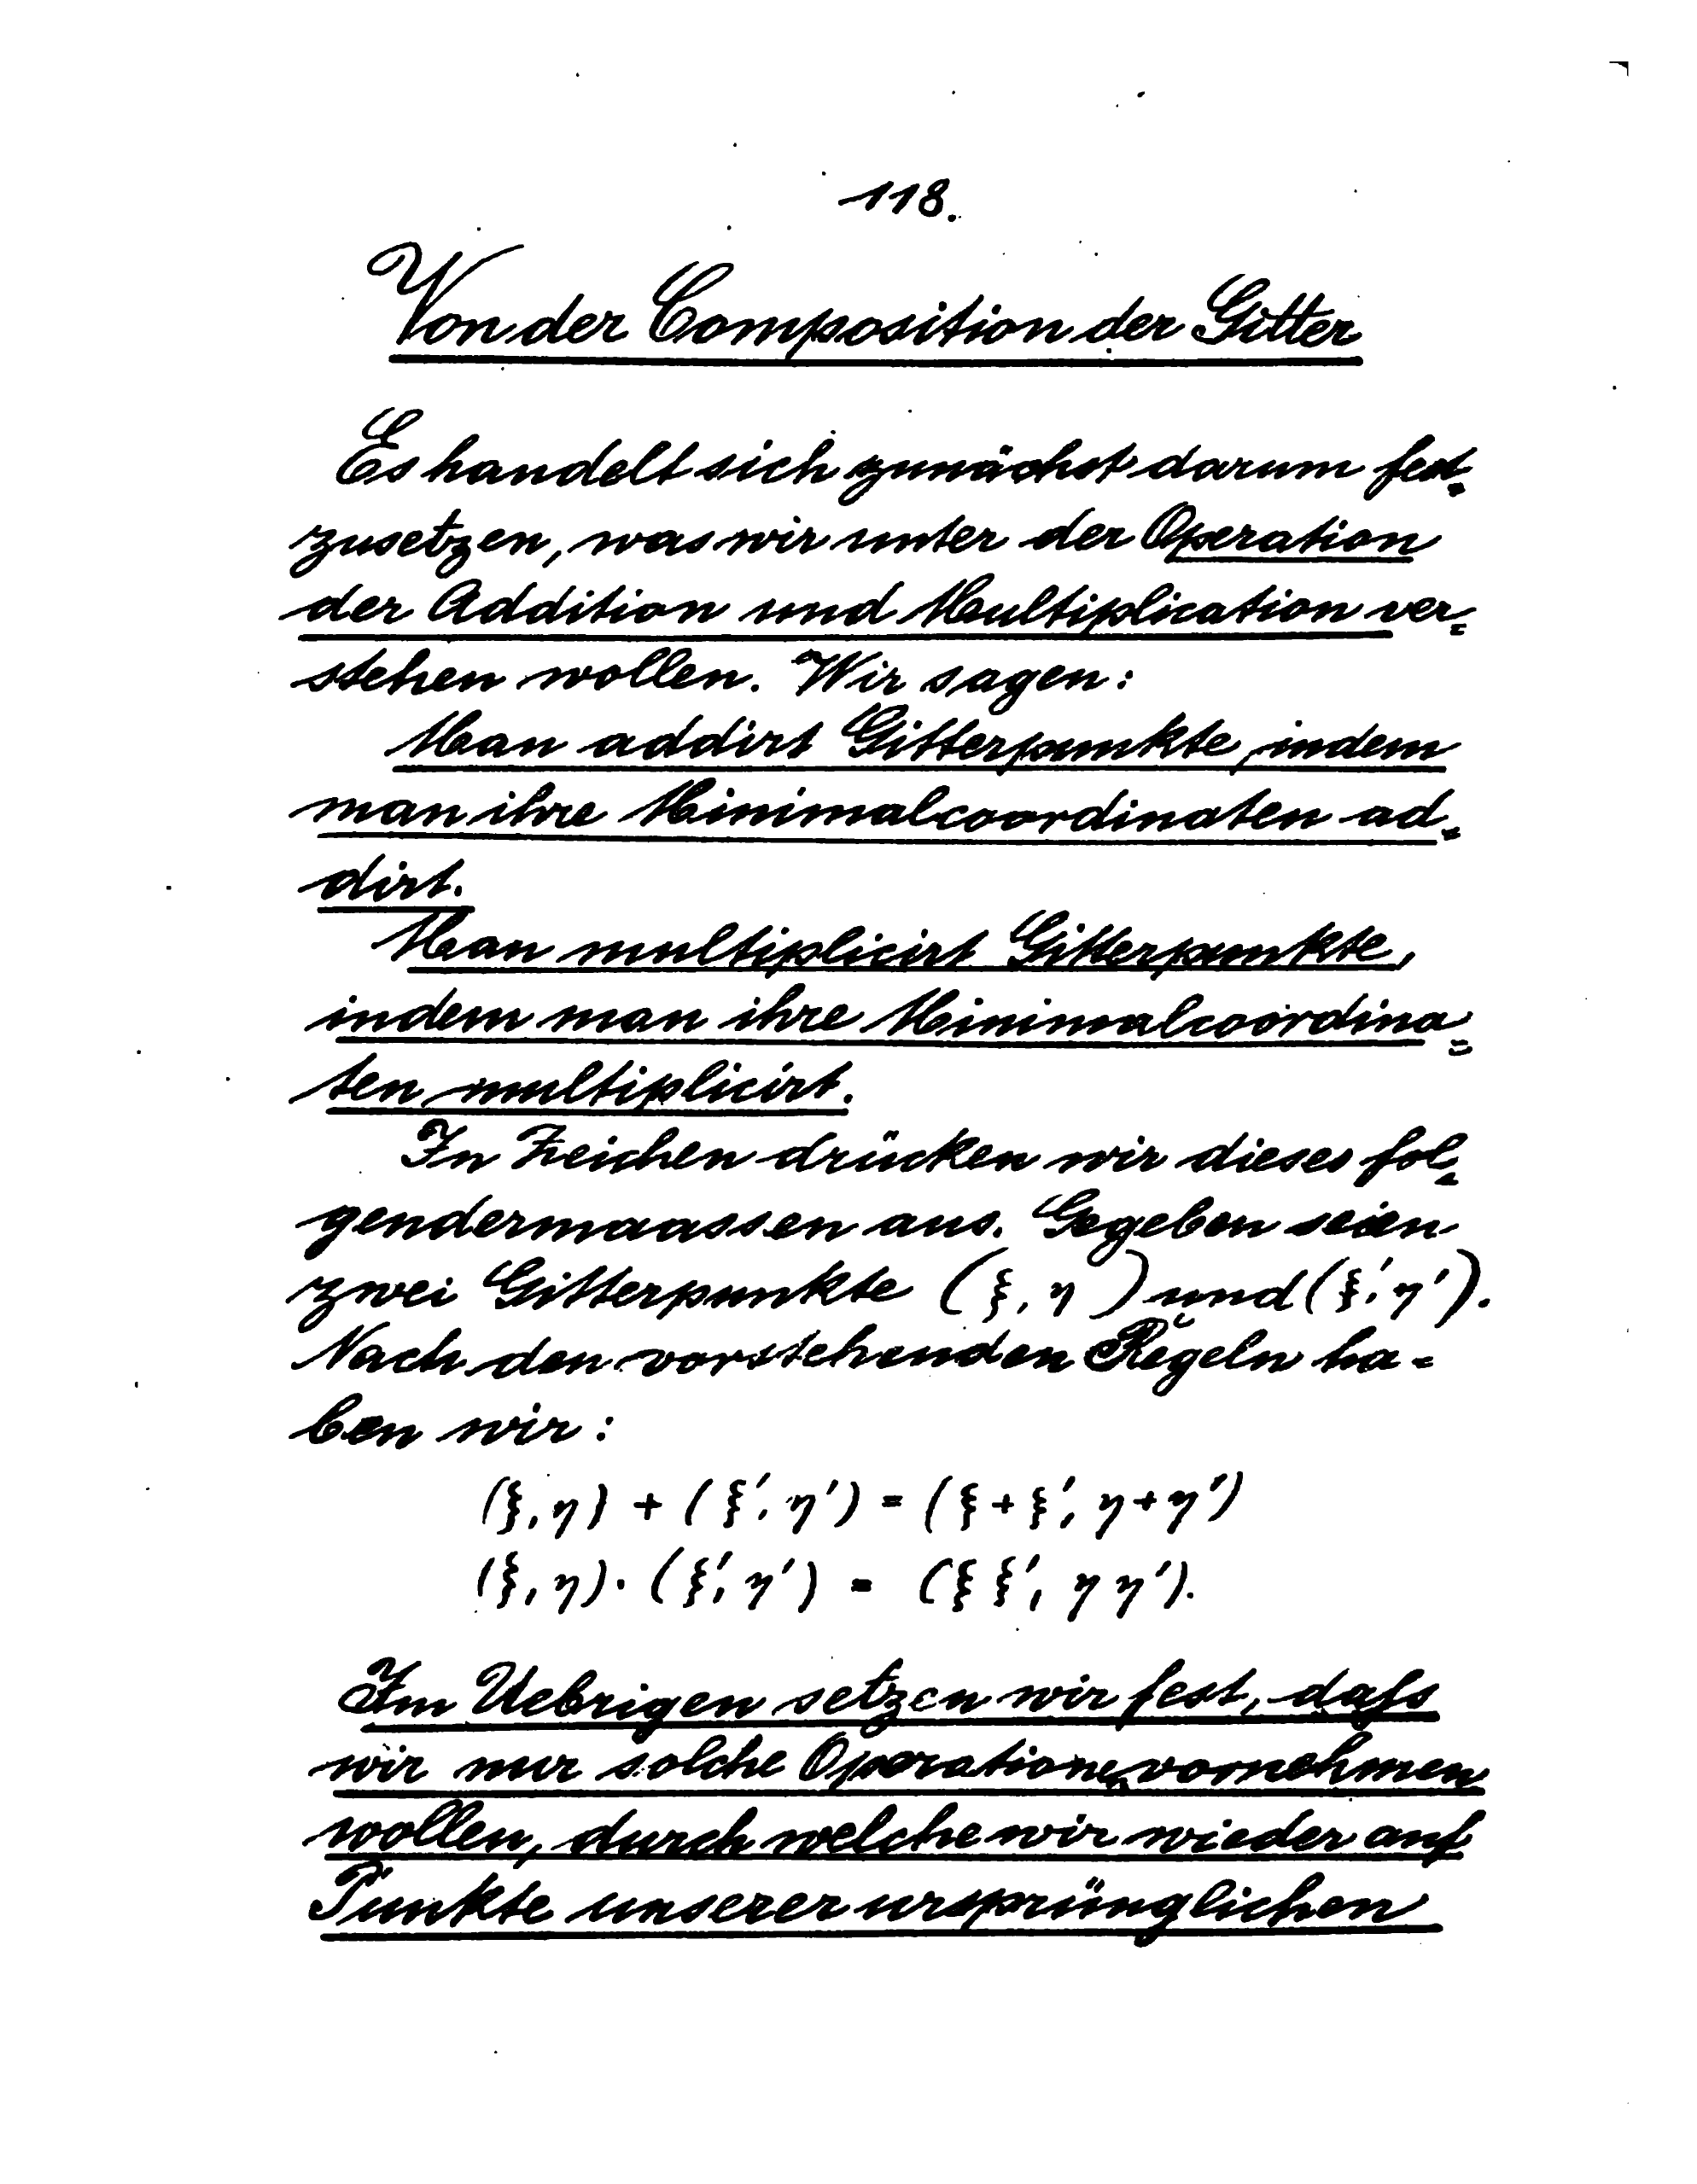 118.
Von der Composition der Gitter
Es handelt sich zunächst darum fest=
zusetzen, was wir unter der Operation
der Addition und Multiplication ver=
stehen wollen. Wir sagen:
Man addirt Gitterpunkte, indem
man ihre Minimalcoordinaten ad=
dirt.
Man multiplicirt Gitterpunkte,
indem man ihre Minimalcoordina=
ten multiplicirt.
In Zeichen drücken wir dieses fol=
gendermaassen aus. Gegeben seien
zwei Gitterpunkte (ξ, η) und (ξ', η').
Nach den vorstehenden Regeln ha=
ben wir:
(ξ, η) + (ξ', η') = (ξ + ξ', η + η')
(ξ, η) · (ξ', η') = (ξ ξ', η η').
Im Uebrigen setzen wir fest, dafs
wir nur solche Operationen vornehmen
wollen, durch welche wir wieder auf
Punkte unserer ursprünglichen